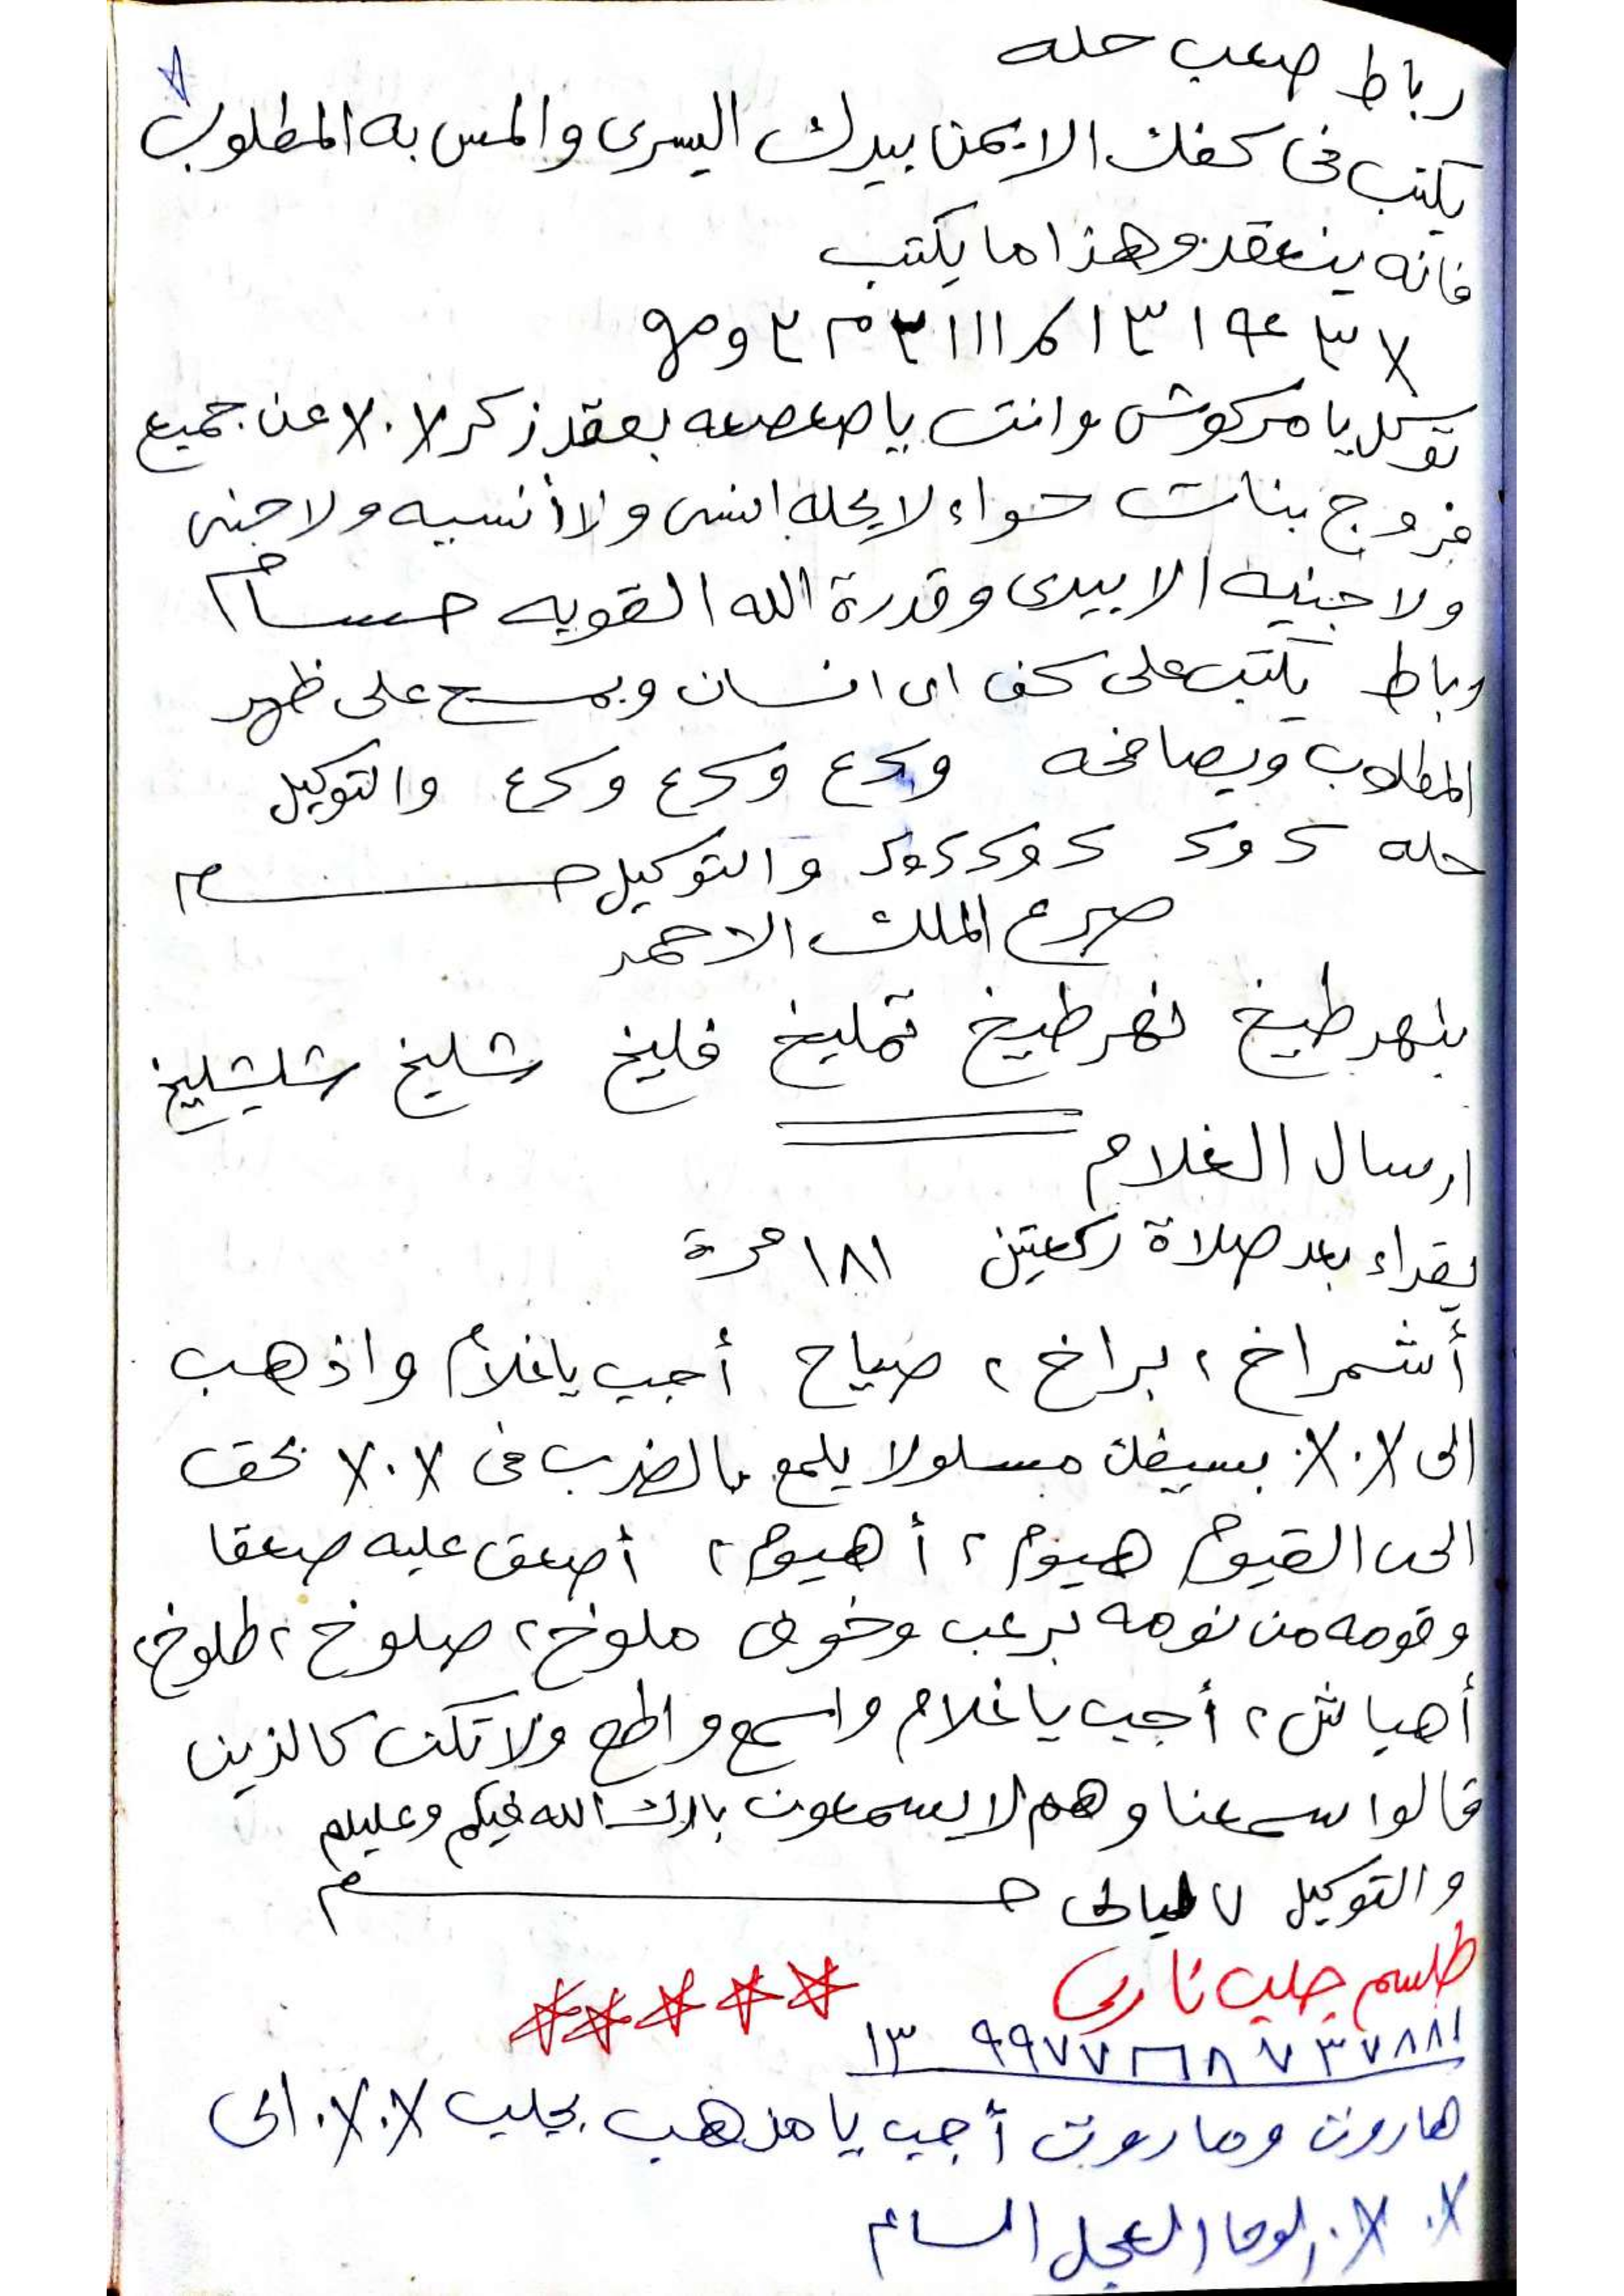 رباط صعب حله
يكتب فى كفك الايمن بيدك اليسرى والمس به المطلوب
فانه ينعقد وهذا ما يكتب
توكل يا مركوش وانت يا صعصعه بعقد ذكر عن جميع
فروج بنات حواء لا يحله انسى ولا أنسيه ولا جنى
ولا جنيه الا بيدى وقدرة الله القويه حسام
رباط يكتب على كف اى انسان ويمسح على ظهر
المطلوب ويصافحه والتوكيل
حله والتوكيل
صرع الملك الاحمر
بنهرطيخ نهرطيخ تمليخ فليخ شليخ شليشليخ
ارسال الغلام
يقراء بعد صلاة ركعتين ١٨١ مرة
أشمراخ ٢ براخ ٢ صياح أجب يا غلام واذهب
الى بسيفك مسلولا يلمع بالضرب فى بحق
الحى القيوم هيوم ٢ أهيوم ٢ أصعق عليه صعقا
وقومه من نومه برعب وخوف ملوخ ٢ صلوخ ٢ طلوخ ٢
أهياش ٢ أجب يا غلام واسمع واطع ولا تكن كالذين
قالوا سمعنا وهم لا يسمعون بارك الله فيكم وعليكم
والتوكيل ٧ ليالى
طلسم جلب نارى
هاروت وماروت أجب يا مذهب بجلب الى
الوحا العجل الساع